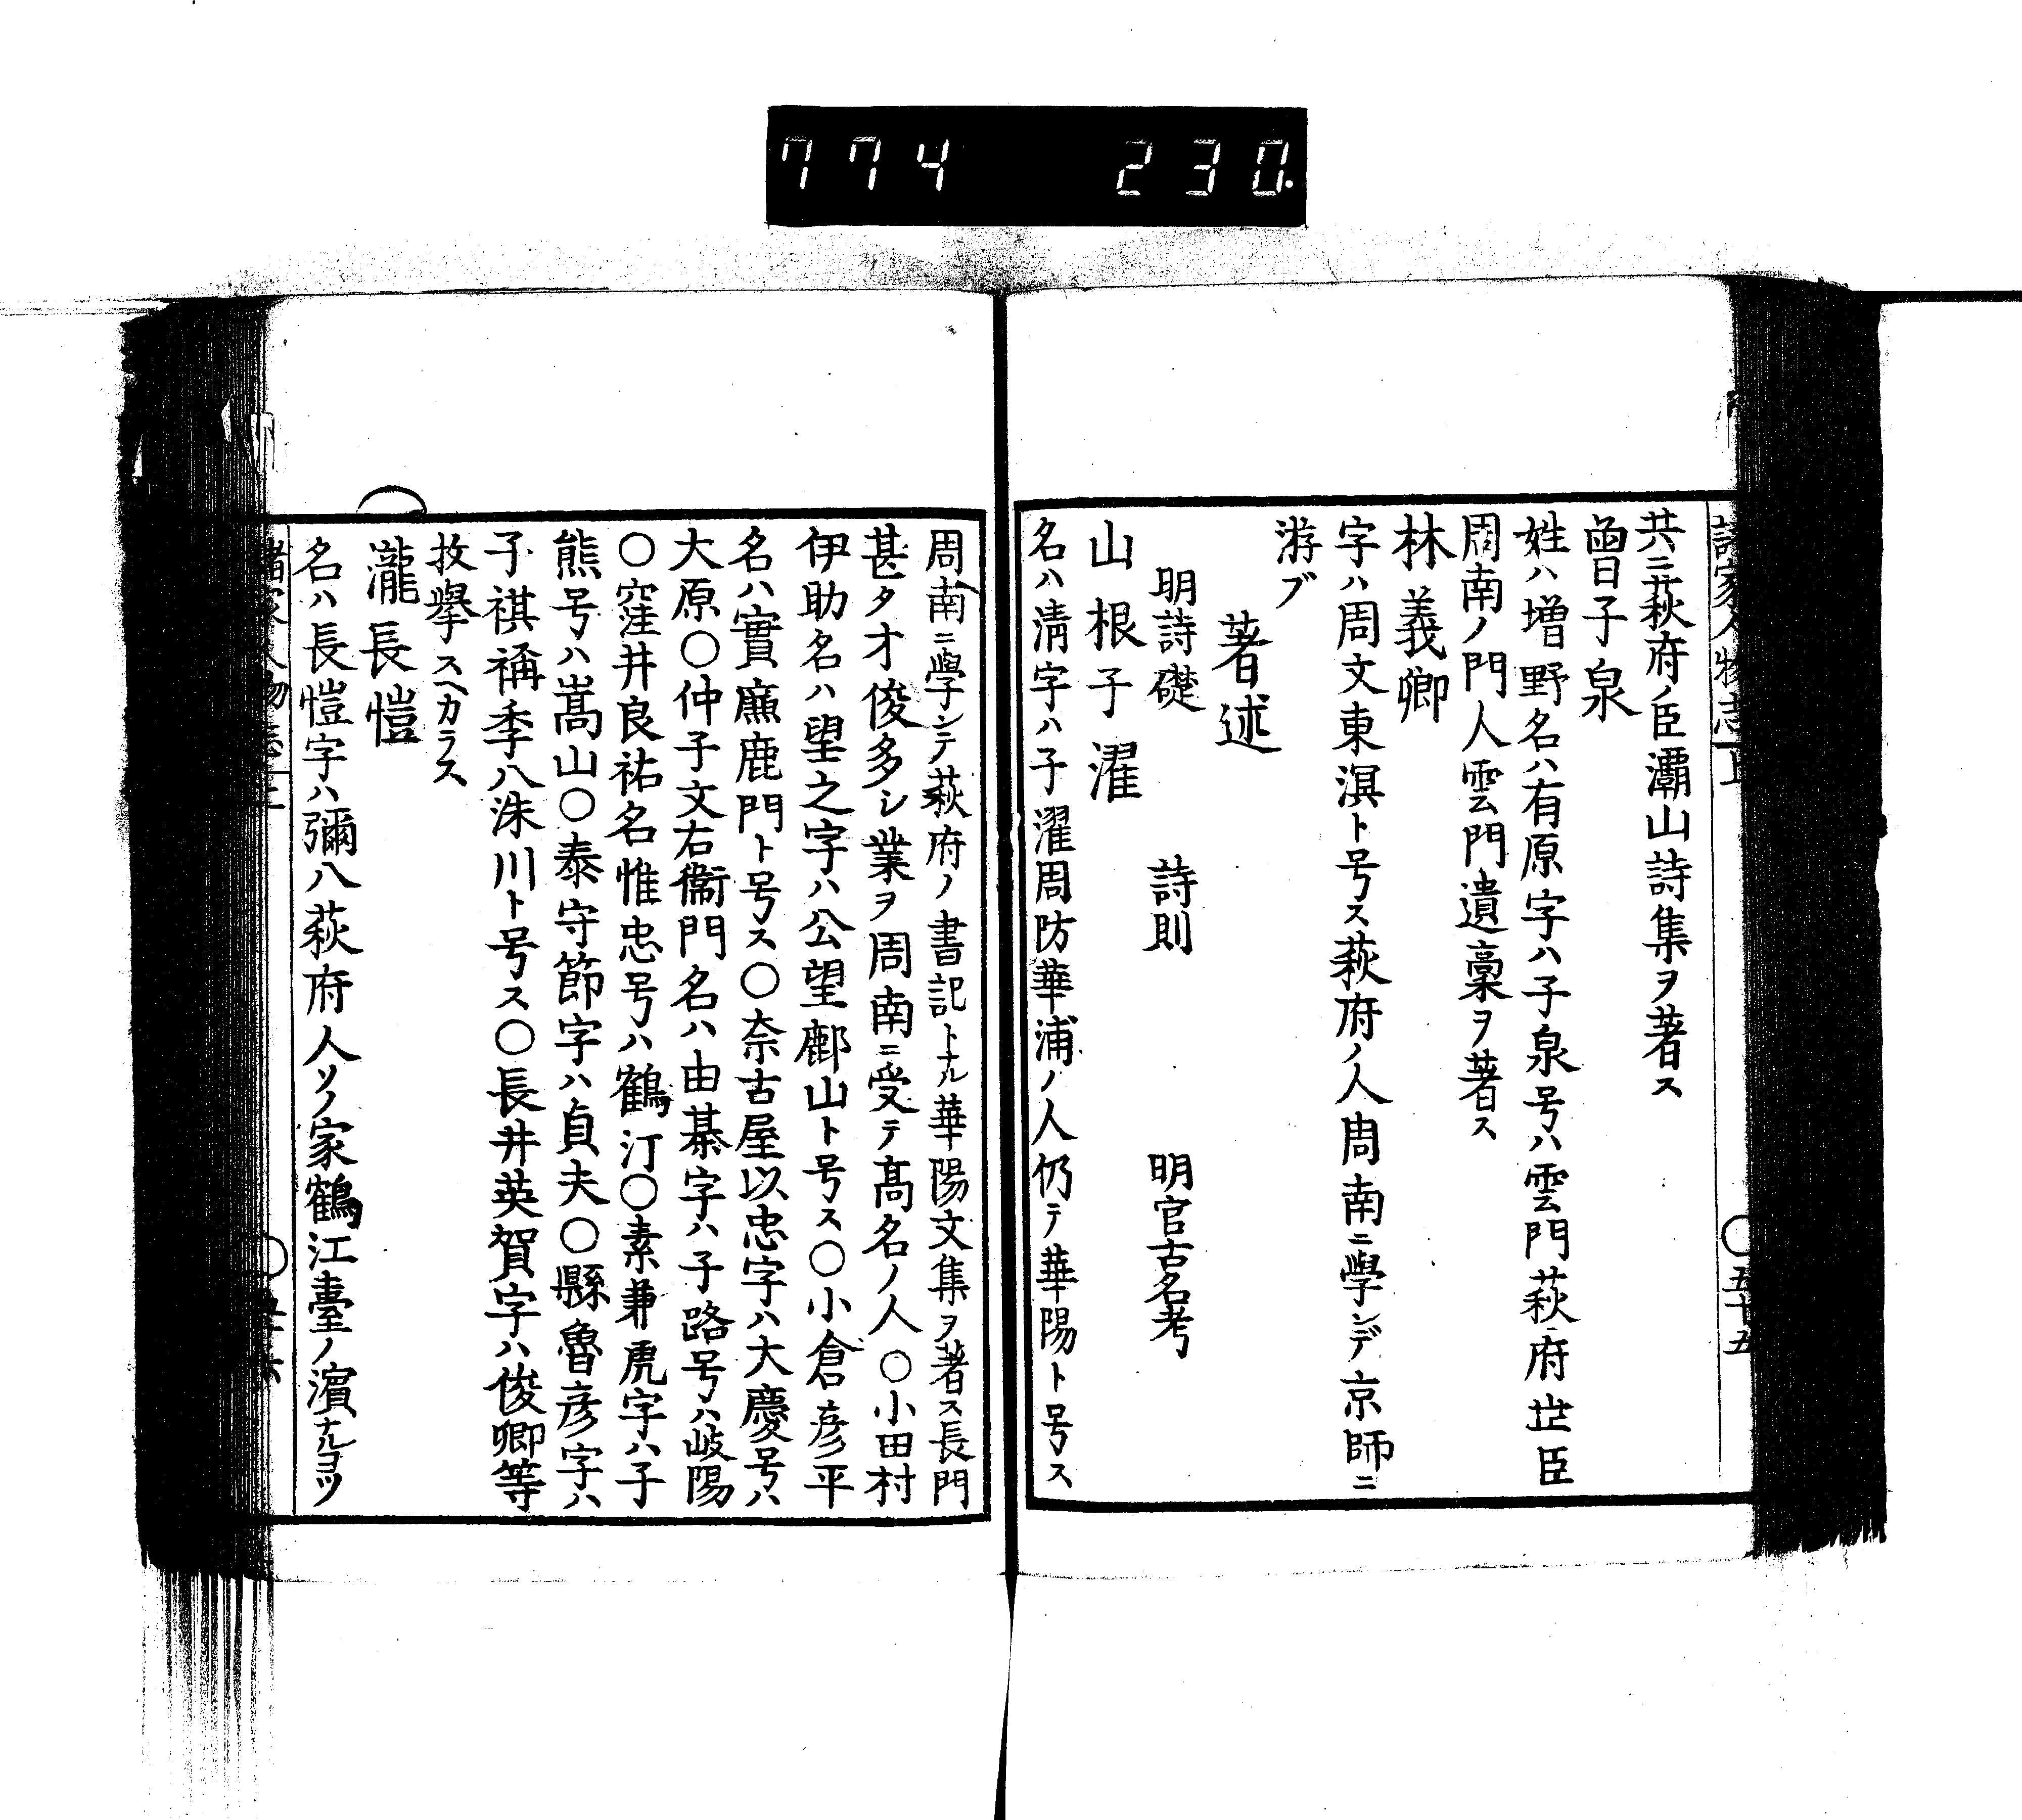 774 230.
諸家人物志上 ○五十五
共ニ萩府ノ臣灞山詩集ヲ著ス
曾子泉
姓ハ増野名ハ有原字ハ子泉号ハ雲門萩府世臣
周南ノ門人雲門遺稾ヲ著ス
林義卿
字ハ周文東溟ト号ス萩府ノ人周南ニ學ンデ京師ニ
游ブ
著述
明詩礎 詩則 明官古名考
山根子濯
名ハ清字ハ子濯周防華浦ノ人仍テ華陽ト号ス
周南ニ學シテ萩府ノ書記トナル華陽文集ヲ著ス長門
甚タオ俊多シ業ヲ周南ニ受テ髙名ノ人○小田村
伊助名ハ望之字ハ公望鄜山ト号ス○小倉彦平
名ハ實廉鹿門ト号ス○奈古屋以忠字ハ大慶号ハ
大原○仲子文右衞門名ハ由基字ハ子路号ハ岐陽
○窪井良祐名惟忠号ハ鶴汀○素兼虎字ハ子
熊号ハ嵩山○泰守節字ハ貞夫○縣魯彦字ハ
子祺稱季八洙川ト号ス○長井英賀字ハ俊卿等
枚擧スヘカラス
瀧長愷
名ハ長愷字ハ彌八萩府人ソノ家鶴江臺ノ濱ナルヨツ